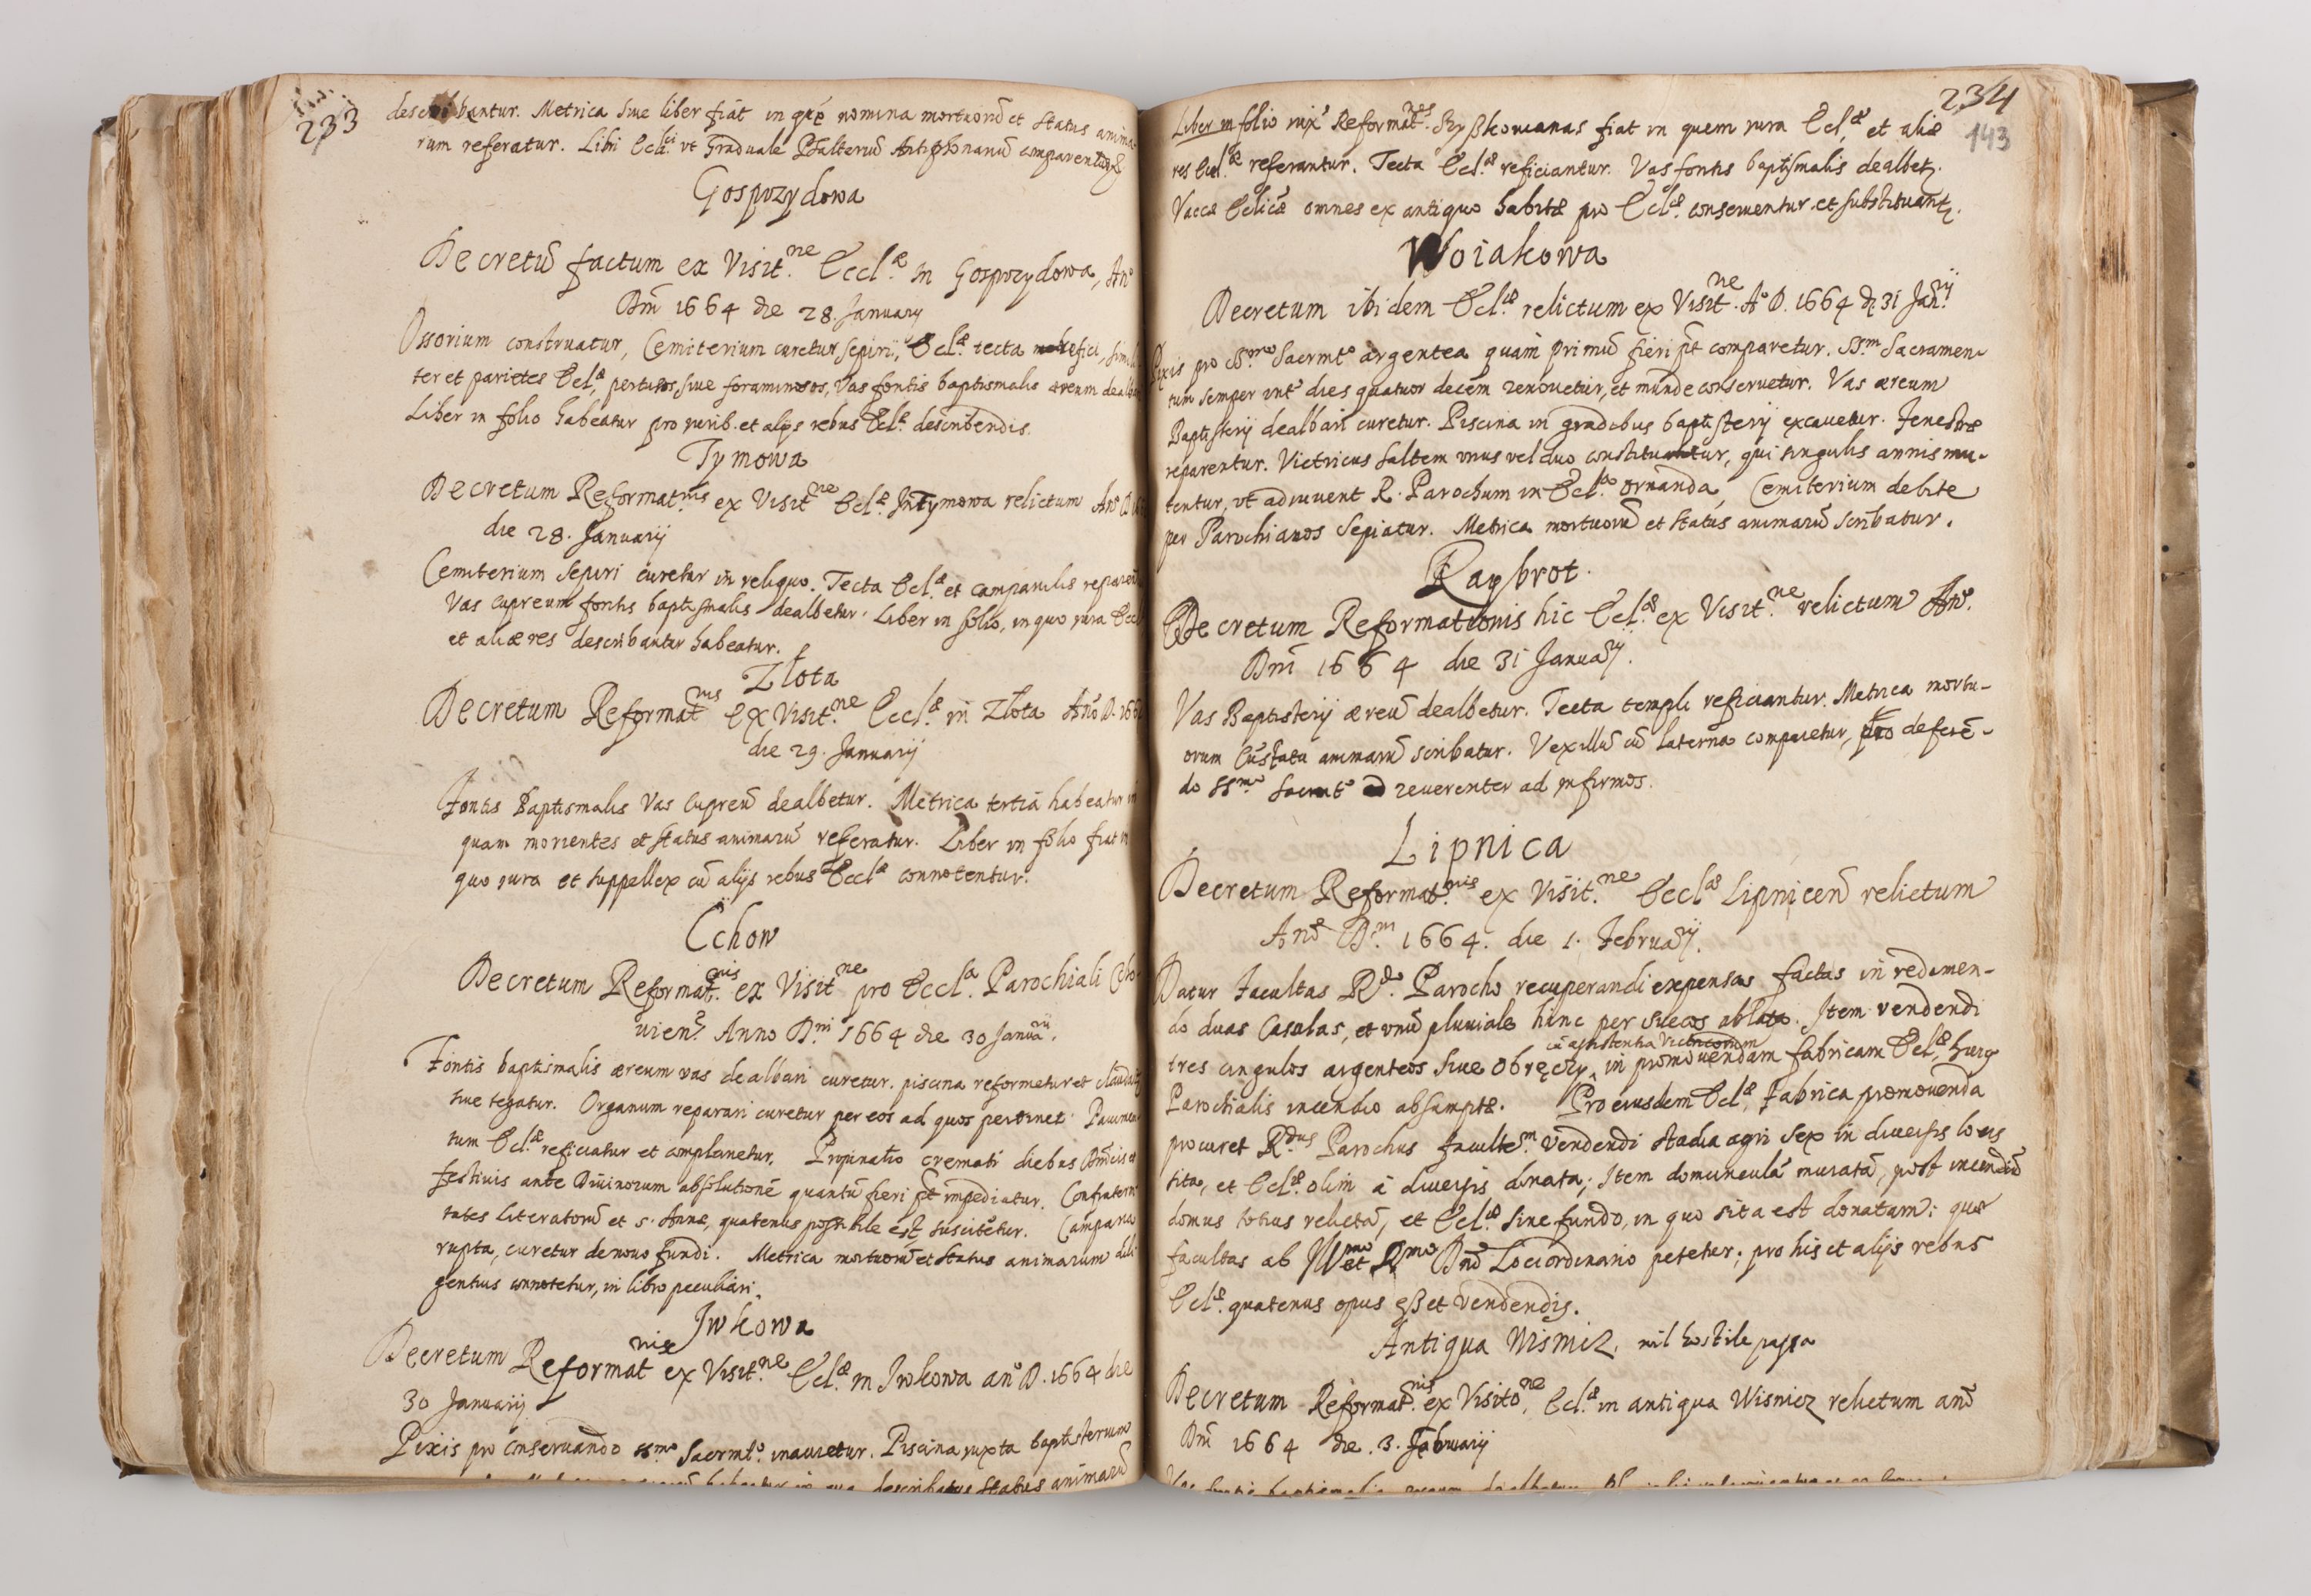 233
describantur. Metrica siue liber fiat in quē nomina mortuorū et status anima-
rum referatur. Libri Eccl. vt Graduale Psalteriū Antiphonariū comparentur
Gosprzydowa
Decretū factum ex Visit.ne Eccl.æ in Gosprzydowa, Anº
Dm̄ 1664 die 28. January
Ossorium construatur, Cemiterium curetur sepiri, Ecl.æ tecta refici, simili-
ter et parietes Ecl.æ pertusos, siue foraminosos, Vas fontis baptismalis æreum
Liber in folio habeatur pro iurib. et alijs rebus Ecl.æ describendis.
Tymowa
Decretum Reformat.nis ex Visit.ne Ecl.æ In Tymowa relictum Anº D
die 28. Januarij
Cemiterium sepiri curetur in reliquo. Tecta Ecl.æ et campanilis
Vas cupreum fontis baptismalis dealbetur. Liber in folio, in quo iura
et aliæ res describantur habeatur.
Złota
Decretum Reformat.nis ex Visit.ne Eccl.æ in Złota Año D.
die 29. Januarij
Fontis Baptismalis Vas cupreū dealbetur. Metrica tertia habeatur in
quam morientes et status animarū referatur. Liber in folio fiat in
quo iura et suppellex cū alijs rebus Eccl.æ connotentur.
Cchow
Decretum Reformat.nis ex Visit.ne pro Eccl.a Parochiali Ccho-
uien. Anno Dni 1664 die 30 Januarij.
Fontis baptismalis æreum vas dealbari curetur. piscina reformetur et
siue tegatur. Organum reparari curetur per eos ad quos pertinet. Pauimen-
tum Ecl.æ reficiatur et complanetur. Propinatio cremati diebus Dnicis et
festiuis ante Diuinorum absolutionē quantū fieri pt impediatur. Confraterni-
tates literatorū et S. Annæ, quatenus possibile est suscitetur. Campana
rupta, curetur de nouo fundi. Metrica mortuorū et status animarum dili
gentius connotetur, in libro peculiari.
Jwkowa
Decretum Reformat.nis ex Visit.ne Ecl.æ in Jwkowa anº D. 1664 die
30 Januarij
Pixis pro conseruando ss.mo Sacrmto. inauretur. Piscina iuxta baptisterium
habeatur in qua describatur status animarū
234
143
Liber in folio iuxª Reformat.nes Szyßkouianas fiat in quem iura Ecl.æ et aliæ
res Ecl.æ referantur. Tecta Ecl.æ reficiantur. Vas fontis baptismalis dealbet.
Vaccæ Eclicæ omnes ex antiquo habitæ pro Ecl.æ conseruentur et substituant.
Woiakowa
Decretum ibidem Ecl.æ relictum ex Visit.ne Aº D. 1664 d. 31 Jan.rij
Pixis pro SS.mo Sacrmtº argentea quam primū fieri pt comparetur. SS.m Sacramen-
tum semper intª dies quatuor decem renouetur, et munde conseruetur. Vas æreum
Baptisterij dealbari curetur. Piscina in gradibus baptisterij excauetur. Fenestræ
reparentur. Vietricus saltem vnus vel duo constituantur, qui singulis annis mu-
tentur, vt adiuuent R. Parochum in Ecl.a ornanda, Cemiterium debite
per Parochianos sepiatur. Metrica mortuorū et status animarū scribatur.
Raybrot.
Decretum Reformationis hic Ecl.æ ex Visit.ne relictum Anº.
Dm̄ 1664 die 31 Januarij.
Vas Baptisterij æreū dealbetur. Tecta templi reficiantur. Metrica mortu-
orum cū statu animarū scribatur. Vexillū cū laterna comparetur, pro deferē-
do SS.mo Sacrmtº reuerenter ad infirmos.
Lipnica
Decretum Reformat.nis ex Visit.ne Eccl.æ Lipnicen̄ relictum
Anº D.m 1664. die 1. Februarij.
Datur facultas R.do Parocho recuperandi expensas factas in redimen-
do duas Casulas, et vnū pluuiale hinc per Suecos ablata. Item vendendi
cū assistentia Vietricorum
tres cingulos argenteos siue obręczy, in promouendam fabricam Ecl.æ huig
Parochialis incendio absumptæ. Pro eiusdem Ecl.æ Fabrica promouenda
procuret R.dus Parochus facultem. vendendi stadia agri sex in diuersis locis
sita, et Ecl.æ olim a diuersis donata; Item domunculā muratā, post incendiū
domus totius relictā, et Ecl.æ sine fundo, in quo sita est donatam; quæ
facultas ab Illmo et Rmo Dnō Loci ordinario petetur; pro his et alijs rebus
Ecl.æ quatenus opus eßet vendendis.
Antiqua Wismicz, nil hostile passa
Decretum Reformat.nis ex Visito.ne, Ecl.æ in antiqua Wisnicz relictum anō
Dm̄ 1664 die 3. Februarij